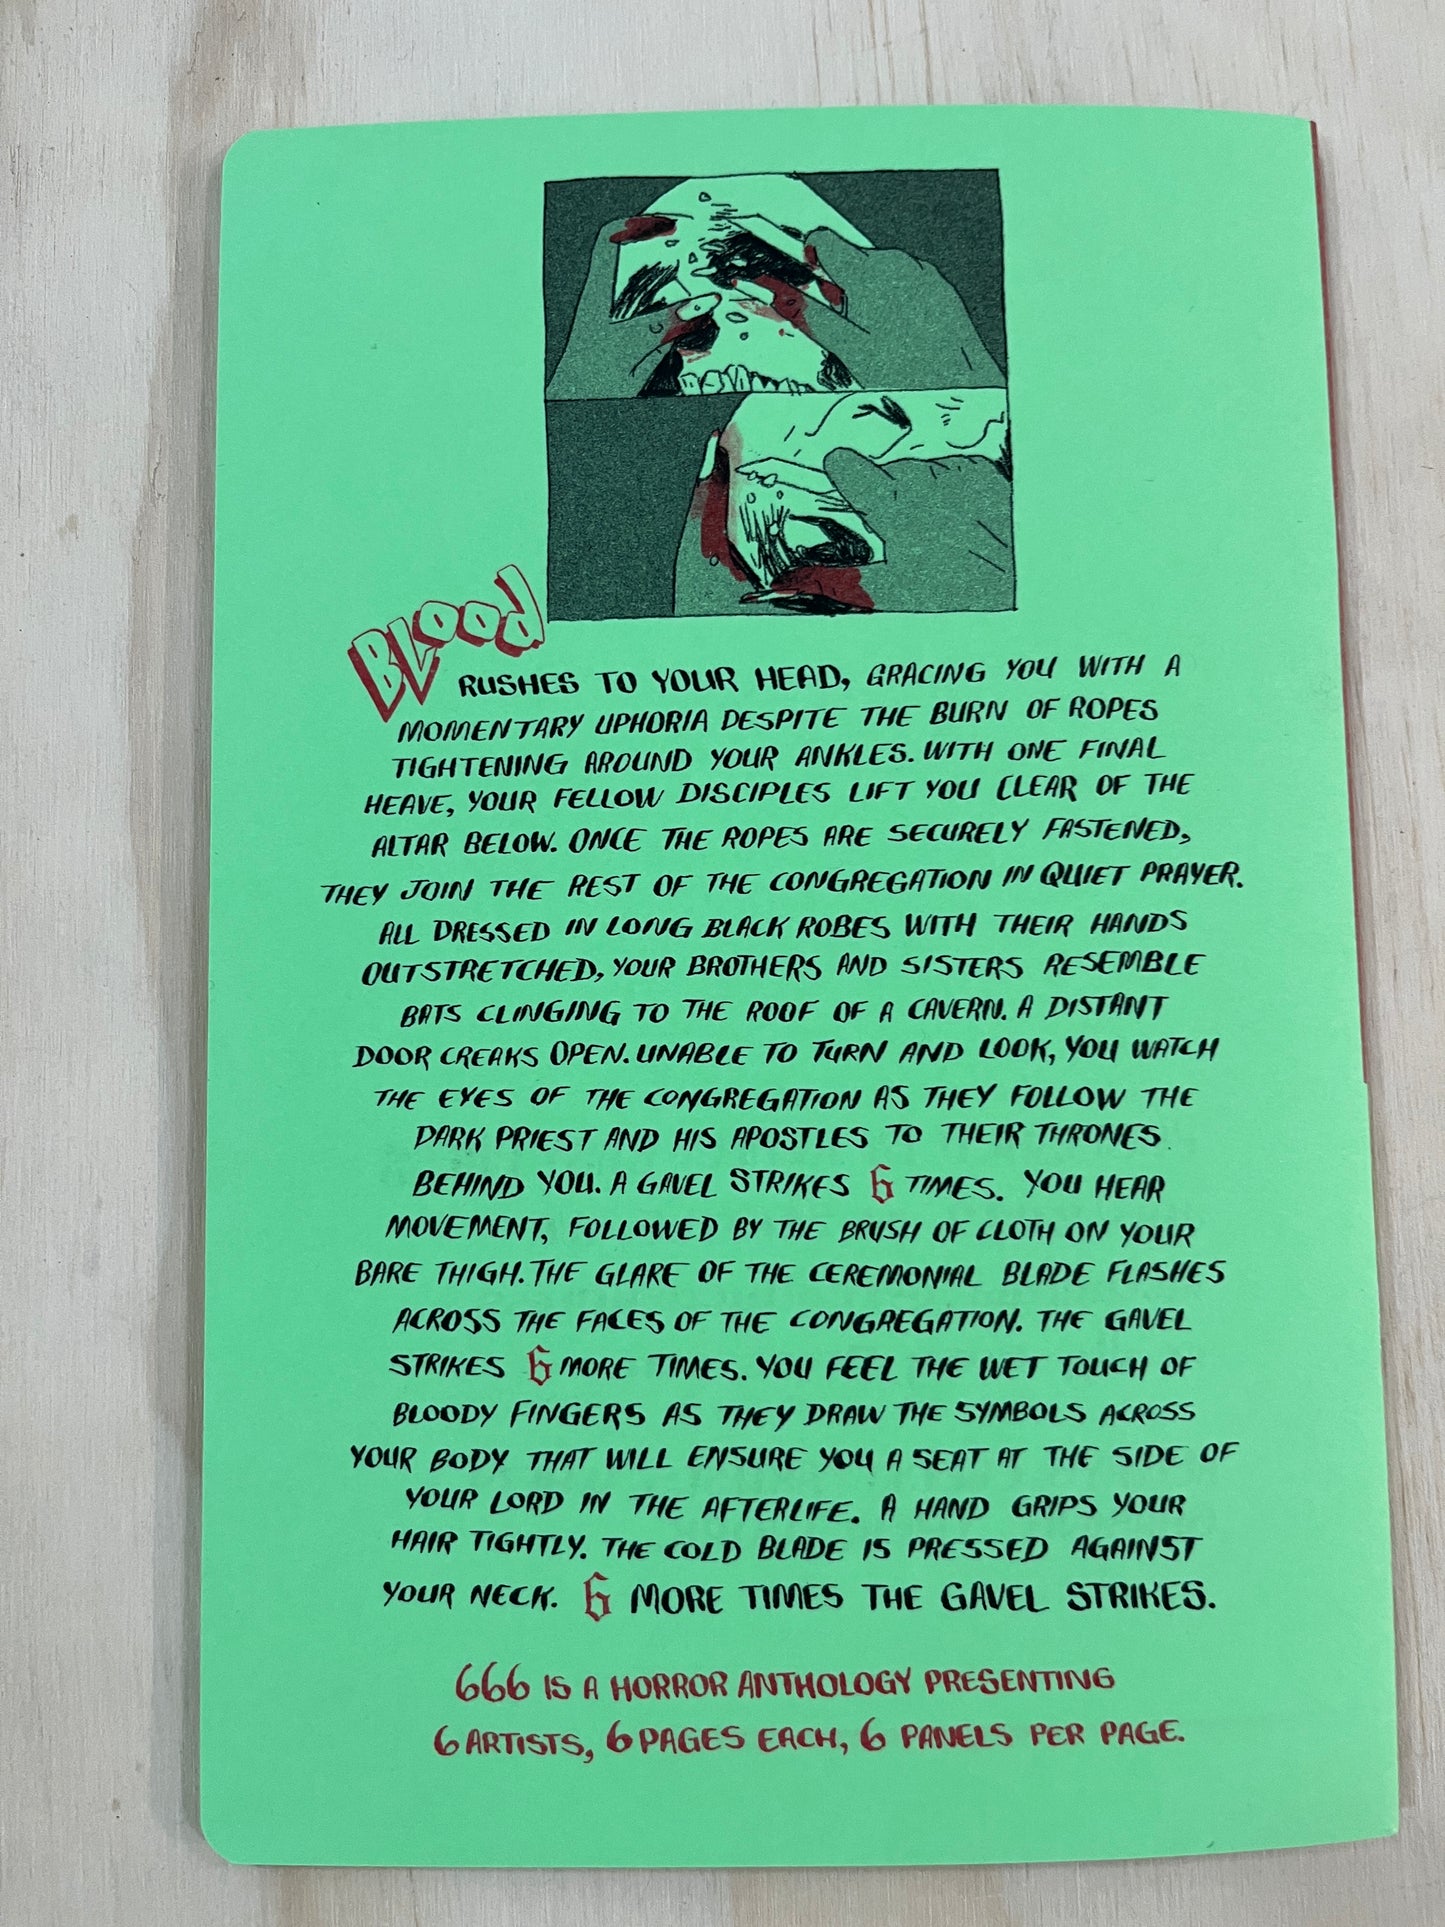 BLOOD
RUSHES TO YOUR HEAD, GRACING YOU WITH A
MOMENTARY UPHORIA DESPITE THE BURN OF ROPES
TIGHTENING AROUND YOUR ANKLES. WITH ONE FINAL
HEAVE, YOUR FELLOW DISCIPLES LIFT YOU CLEAR OF THE
ALTAR BELOW. ONCE THE ROPES ARE SECURELY FASTENED,
THEY JOIN THE REST OF THE CONGREGATION IN QUIET PRAYER.
ALL DRESSED IN LONG BLACK ROBES WITH THEIR HANDS
OUTSTRETCHED, YOUR BROTHERS AND SISTERS RESEMBLE
BATS CLINGING TO THE ROOF OF A CAVERN. A DISTANT
DOOR CREAKS OPEN. UNABLE TO TURN AND LOOK, YOU WATCH
THE EYES OF THE CONGREGATION AS THEY FOLLOW THE
DARK PRIEST AND HIS APOSTLES TO THEIR THRONES
BEHIND YOU. A GAVEL STRIKES 6 TIMES. YOU HEAR
MOVEMENT, FOLLOWED BY THE BRUSH OF CLOTH ON YOUR
BARE THIGH. THE GLARE OF THE CEREMONIAL BLADE FLASHES
ACROSS THE FACES OF THE CONGREGATION. THE GAVEL
STRIKES 6 MORE TIMES. YOU FEEL THE WET TOUCH OF
BLOODY FINGERS AS THEY DRAW THE SYMBOLS ACROSS
YOUR BODY THAT WILL ENSURE YOU A SEAT AT THE SIDE OF
YOUR LORD IN THE AFTERLIFE. A HAND GRIPS YOUR
HAIR TIGHTLY. THE COLD BLADE IS PRESSED AGAINST
YOUR NECK. 6 MORE TIMES THE GAVEL STRIKES.
666 IS A HORROR ANTHOLOGY PRESENTING
6 ARTISTS, 6 PAGES EACH, 6 PANELS PER PAGE.